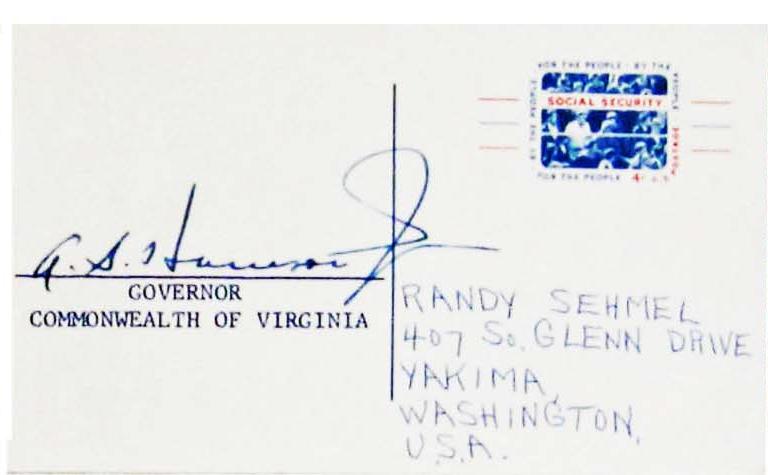 FOR THE PEOPLE · BY THE PEOPLE
SOCIAL SECURITY
BY THE PEOPLE
POSTAGE
FOR THE PEOPLE 4¢ U.S.
A. S. Harrison Jr
GOVERNOR
COMMONWEALTH OF VIRGINIA
RANDY SEHMEL
407 So. GLENN DRIVE
YAKIMA,
WASHINGTON,
U.S.A.